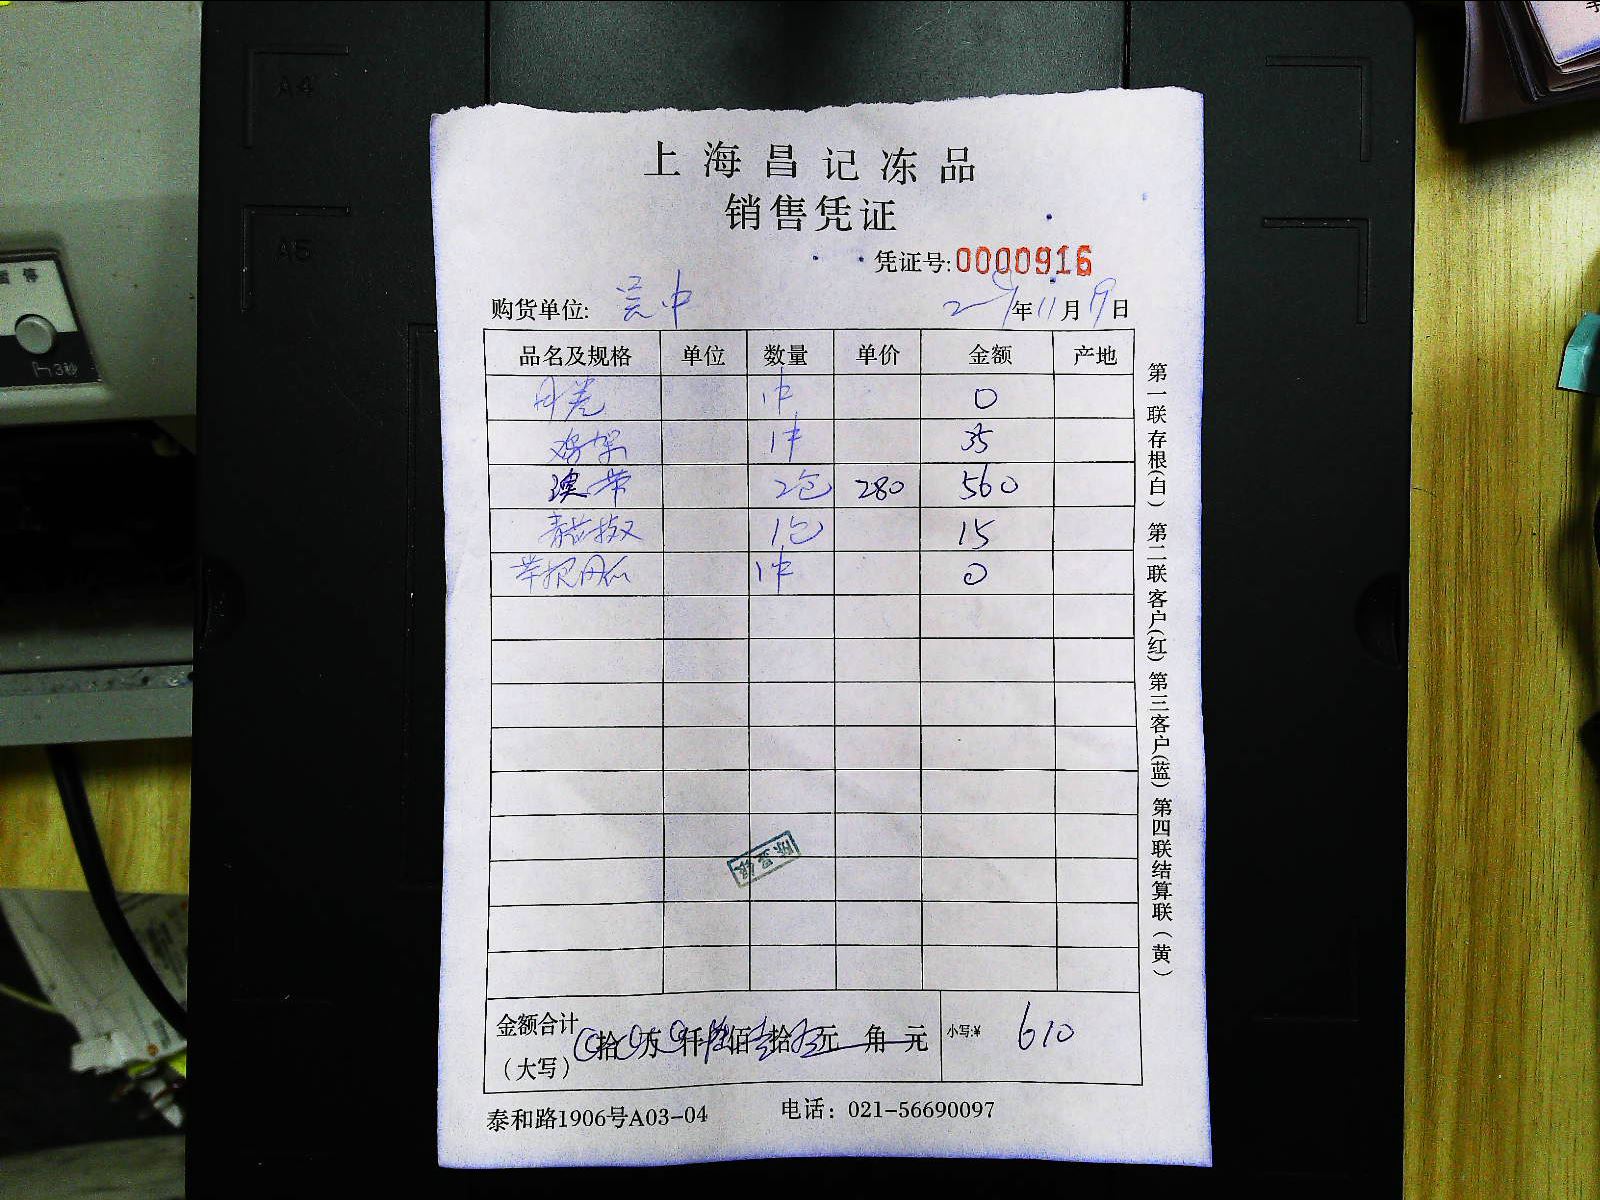 上海昌记冻品
销售凭证
凭证号:0000916
购货单位: 吴中 年11月19日
品名及规格 单位 数量 单价 金额 产地
1件 0
鸡架 1件 35
澳带 2包 280 560
青花椒 1包 15
1件 0
金额合计
(大写) 拾 万 仟陆佰壹拾 元 角 元 小写:¥ 610
泰和路1906号A03-04 电话: 021-56690097
第一联存根(白) 第二联客户(红) 第三客户(蓝) 第四联结算联(黄)
A4
A5
停
3秒